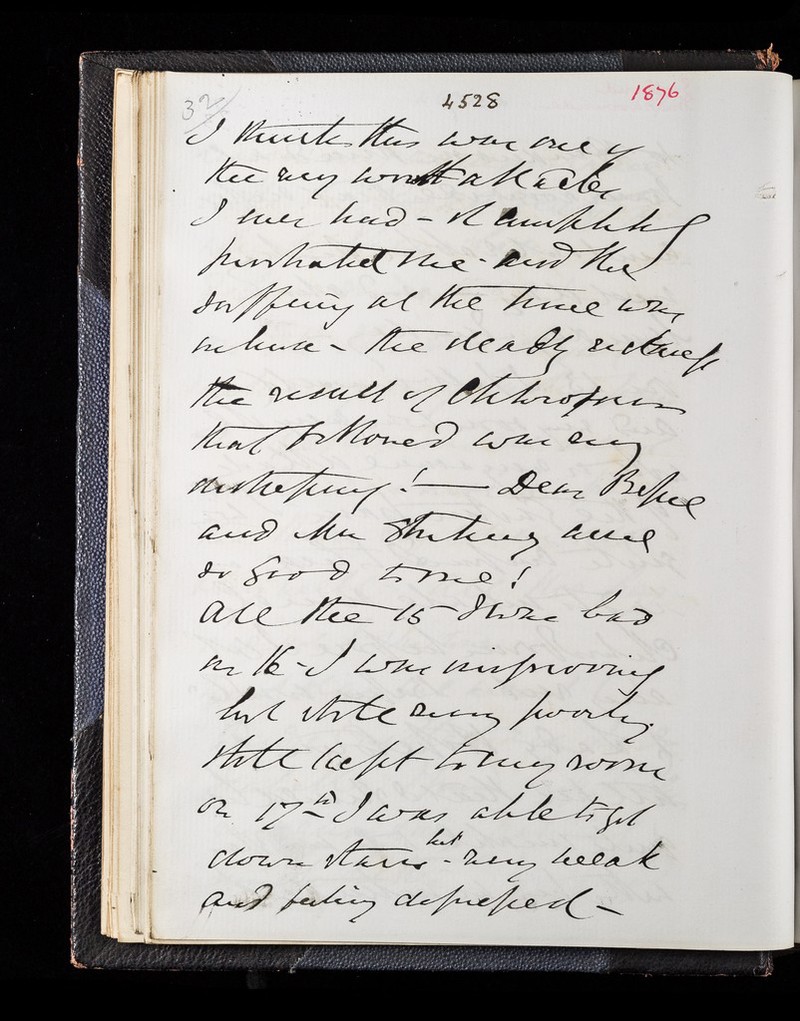 32/ 4528 1876
I think this was one of
the very worst attacks
I ever had - it completely
prostrated me - and the
suffering at the time was
intense - the deadly sickness
the result of Chloroform
that followed was very
distressing! — Dear Bessie
and Mrs all
so good to me!
All the 15 - I was bad
on 16 - I was improving
but still very poorly
still kept to my room
on 17th I was able to get
down stairs - but very weak
and feeling depressed -